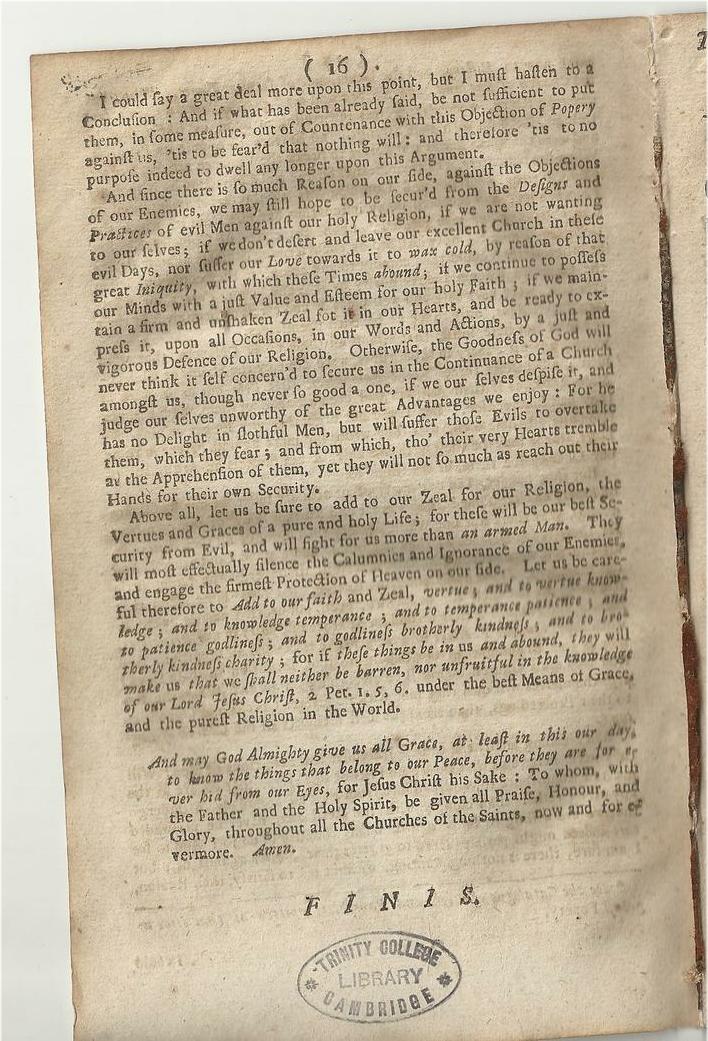 ( 16 ).
I could ſay a great deal more upon this point, but I muſt haſten to a
Concluſion : And if what has been already ſaid, be not ſufficient to put
them, in ſome meaſure, out of Countenance with this Objection of Popery
againſt us, 'tis to be fear'd that nothing will: and therefore 'tis to no
purpoſe indeed to dwell any longer upon this Argument.
And ſince there is ſo much Reaſon on our ſide, againſt the Objections
of our Enemies, we may ſtill hope to be ſecur'd from the Deſigns and
Practices of evil Men againſt our holy Religion, if we are not wanting
to our ſelves; if we don't deſert and leave our excellent Church in theſe
evil Days, nor ſuffer our Love towards it to wax cold, by reaſon of that
great Iniquity, with which theſe Times abound; if we continue to poſſeſs
our Minds with a juſt Value and Eſteem for our holy Faith ; if we main-
tain a firm and unſhaken Zeal fot it in our Hearts, and be ready to ex-
preſs it, upon all Occaſions, in our Words and Actions, by a juſt and
vigorous Defence of our Religion. Otherwiſe, the Goodneſs of God will
never think it ſelf concern'd to ſecure us in the Continuance of a Church
amongſt us, though never ſo good a one, if we our ſelves deſpiſe it, and
judge our ſelves unworthy of the great Advantages we enjoy : For he
has no Delight in ſlothful Men, but will ſuffer thoſe Evils to overtake
them, which they fear ; and from which, tho' their very Hearts tremble
at the Apprehenſion of them, yet they will not ſo much as reach out their
Hands for their own Security.
Above all, let us be ſure to add to our Zeal for our Religion, the
Vertues and Graces of a pure and holy Life ; for theſe will be our beſt Se-
curity from Evil, and will fight for us more than an armed Man. They
will moſt effectually ſilence the Calumnies and Ignorance of our Enemies,
and engage the firmeſt Protection of Heaven on our ſide. Let us be care-
ful therefore to Add to our faith and Zeal, vertue ; and to vertue know-
ledge ; and to knowledge temperance ; and to temperance patience ; and
to patience godlineſs ; and to godlineſs brotherly kindneſs ; and to bro-
therly kindneſs charity ; for if theſe things be in us and abound, they will
make us that we ſhall neither be barren, nor unfruitful in the knowledge
of our Lord Jeſus Chriſt, 2 Pet. 1. 5, 6. under the beſt Means of Grace,
and the pureſt Religion in the World.
And may God Almighty give us all Grace, at leaſt in this our day,
to know the things that belong to our Peace, before they are for e-
ver hid from our Eyes, for Jeſus Chriſt his Sake : To whom, with
the Father and the Holy Spirit, be given all Praiſe, Honour, and
Glory, throughout all the Churches of the Saints, now and for e-
vermore. Amen.
F I N I S.
TRINITY COLLEGE
LIBRARY
CAMBRIDGE